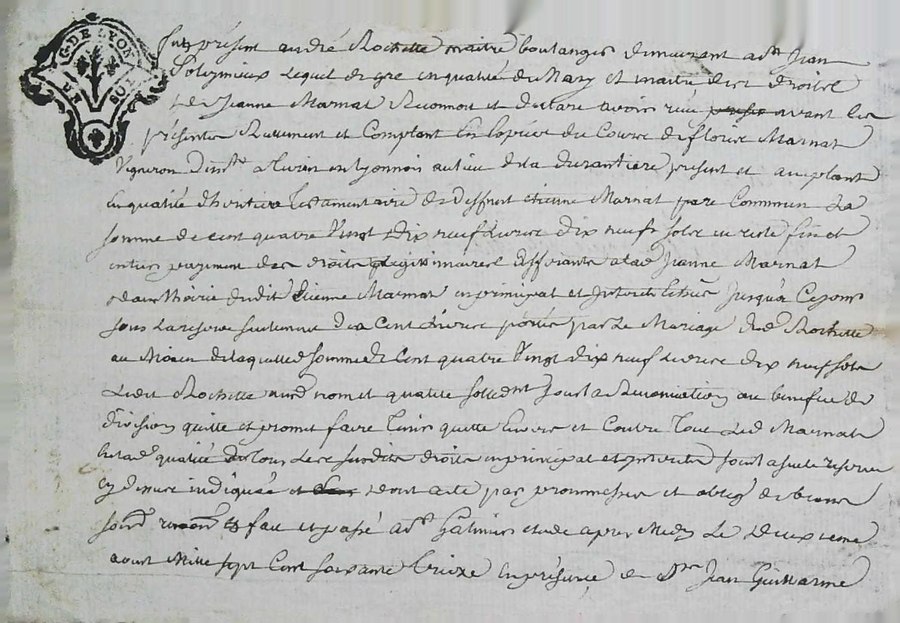 G DE LYON
fut présent andré Rochette maitre boulanger demeurant a St Jean
Soleymieux Lequel de gre en qualité de Mary et maitre des droits
de Jeanne Marnat Reconnoit et declare avoir reçu avant les
présentes Réellement et Comptant En Espèces du Cours de fleurie Marnat
Vigneron demt a en lyonnois au lieu de la durantiere présent et acceptant
En qualité d'heritier Testamentaire de deffunt etienne Marnat pere Commun La
somme de cent quatre Vingt dix neuf Livres dix neuf sols en reste fin et
entier payement des droits Legitimaires afferants a lad Jeanne Marnat
dans l'hoirie dudit Etienne Marnat en principal et Interets Echus Jusqu'a Ce jour
sous La reserve seulement des Cent Livres portés par Le Mariage dud Rochette
au Moien de laquelle somme de Cent quatre Vingt dix neuf Livres dix neuf sols
Ledit Rochette aud nom et qualité sollidt sous la Renonciation au benefice de
division quitte et promet faire Tenir quitte Envers et Contre Tous Led Marnat
En lad qualité de tous Les susdits droits en principal et interets sous la seule reserve
Cy dessus indiquée dont acte par promesses et oblig de biens
soumd renond &a fait et passé a St Galmier etude apres Midy Le deuxieme
aoust Mille sept Cent soixante Treize En présence de Sr Jean Guillarme